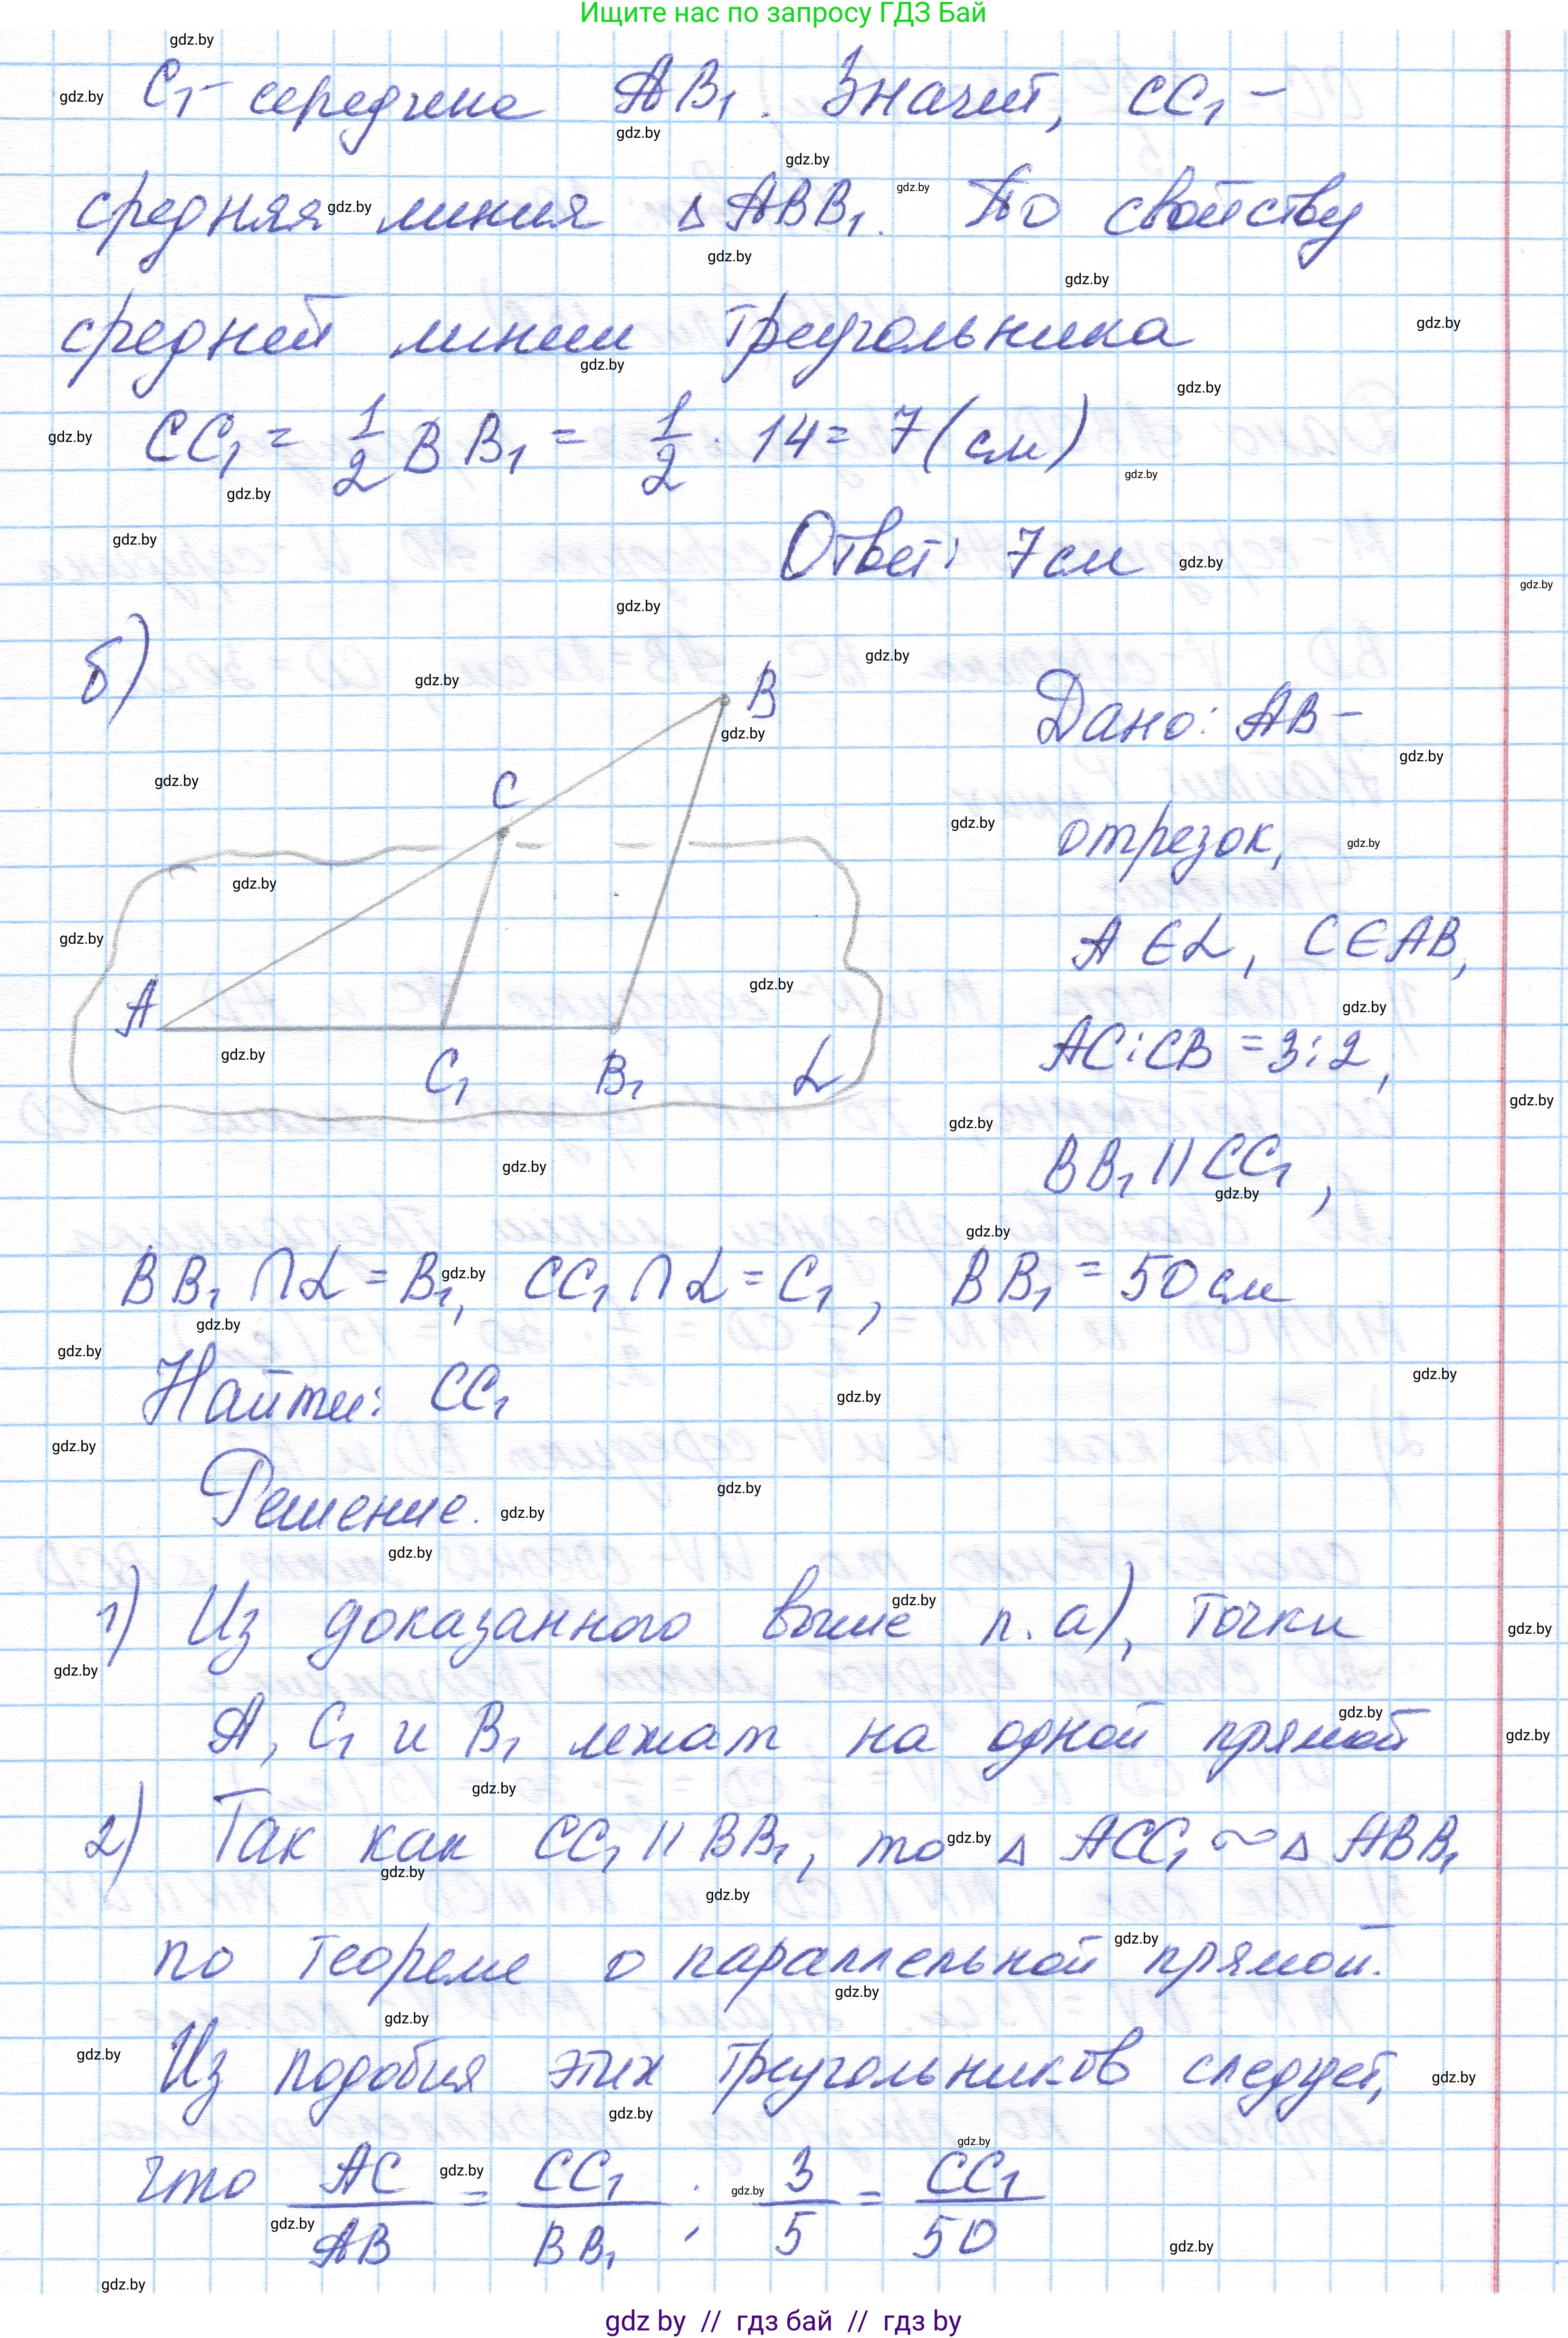 Ищите нас по запросу ГДЗ Бай
C₁ - середина AB₁. Значит, CC₁ -
средняя линия △ABB₁. По свойству
средней линии треугольника
CC₁ = 1/2 BB₁ = 1/2 · 14 = 7 (см)
Ответ: 7 см
б)
B
C
A
C₁
B₁
α
Дано: AB -
отрезок,
A ∈ α, C ∈ AB,
AC : CB = 3 : 2,
BB₁ || CC₁,
BB₁ ∩ α = B₁, CC₁ ∩ α = C₁, BB₁ = 50 см
Найти: CC₁
Решение.
1) Из доказанного выше п. а), точки
A, C₁ и B₁ лежат на одной прямой
2) Так как CC₁ || BB₁, то △ ACC₁ ~ △ ABB₁
по теореме о параллельной прямой.
Из подобия этих треугольников следует,
что AC/AB = CC₁/BB₁ ; 3/5 = CC₁/50
gdz.by
gdz by // гдз бай // гдз by